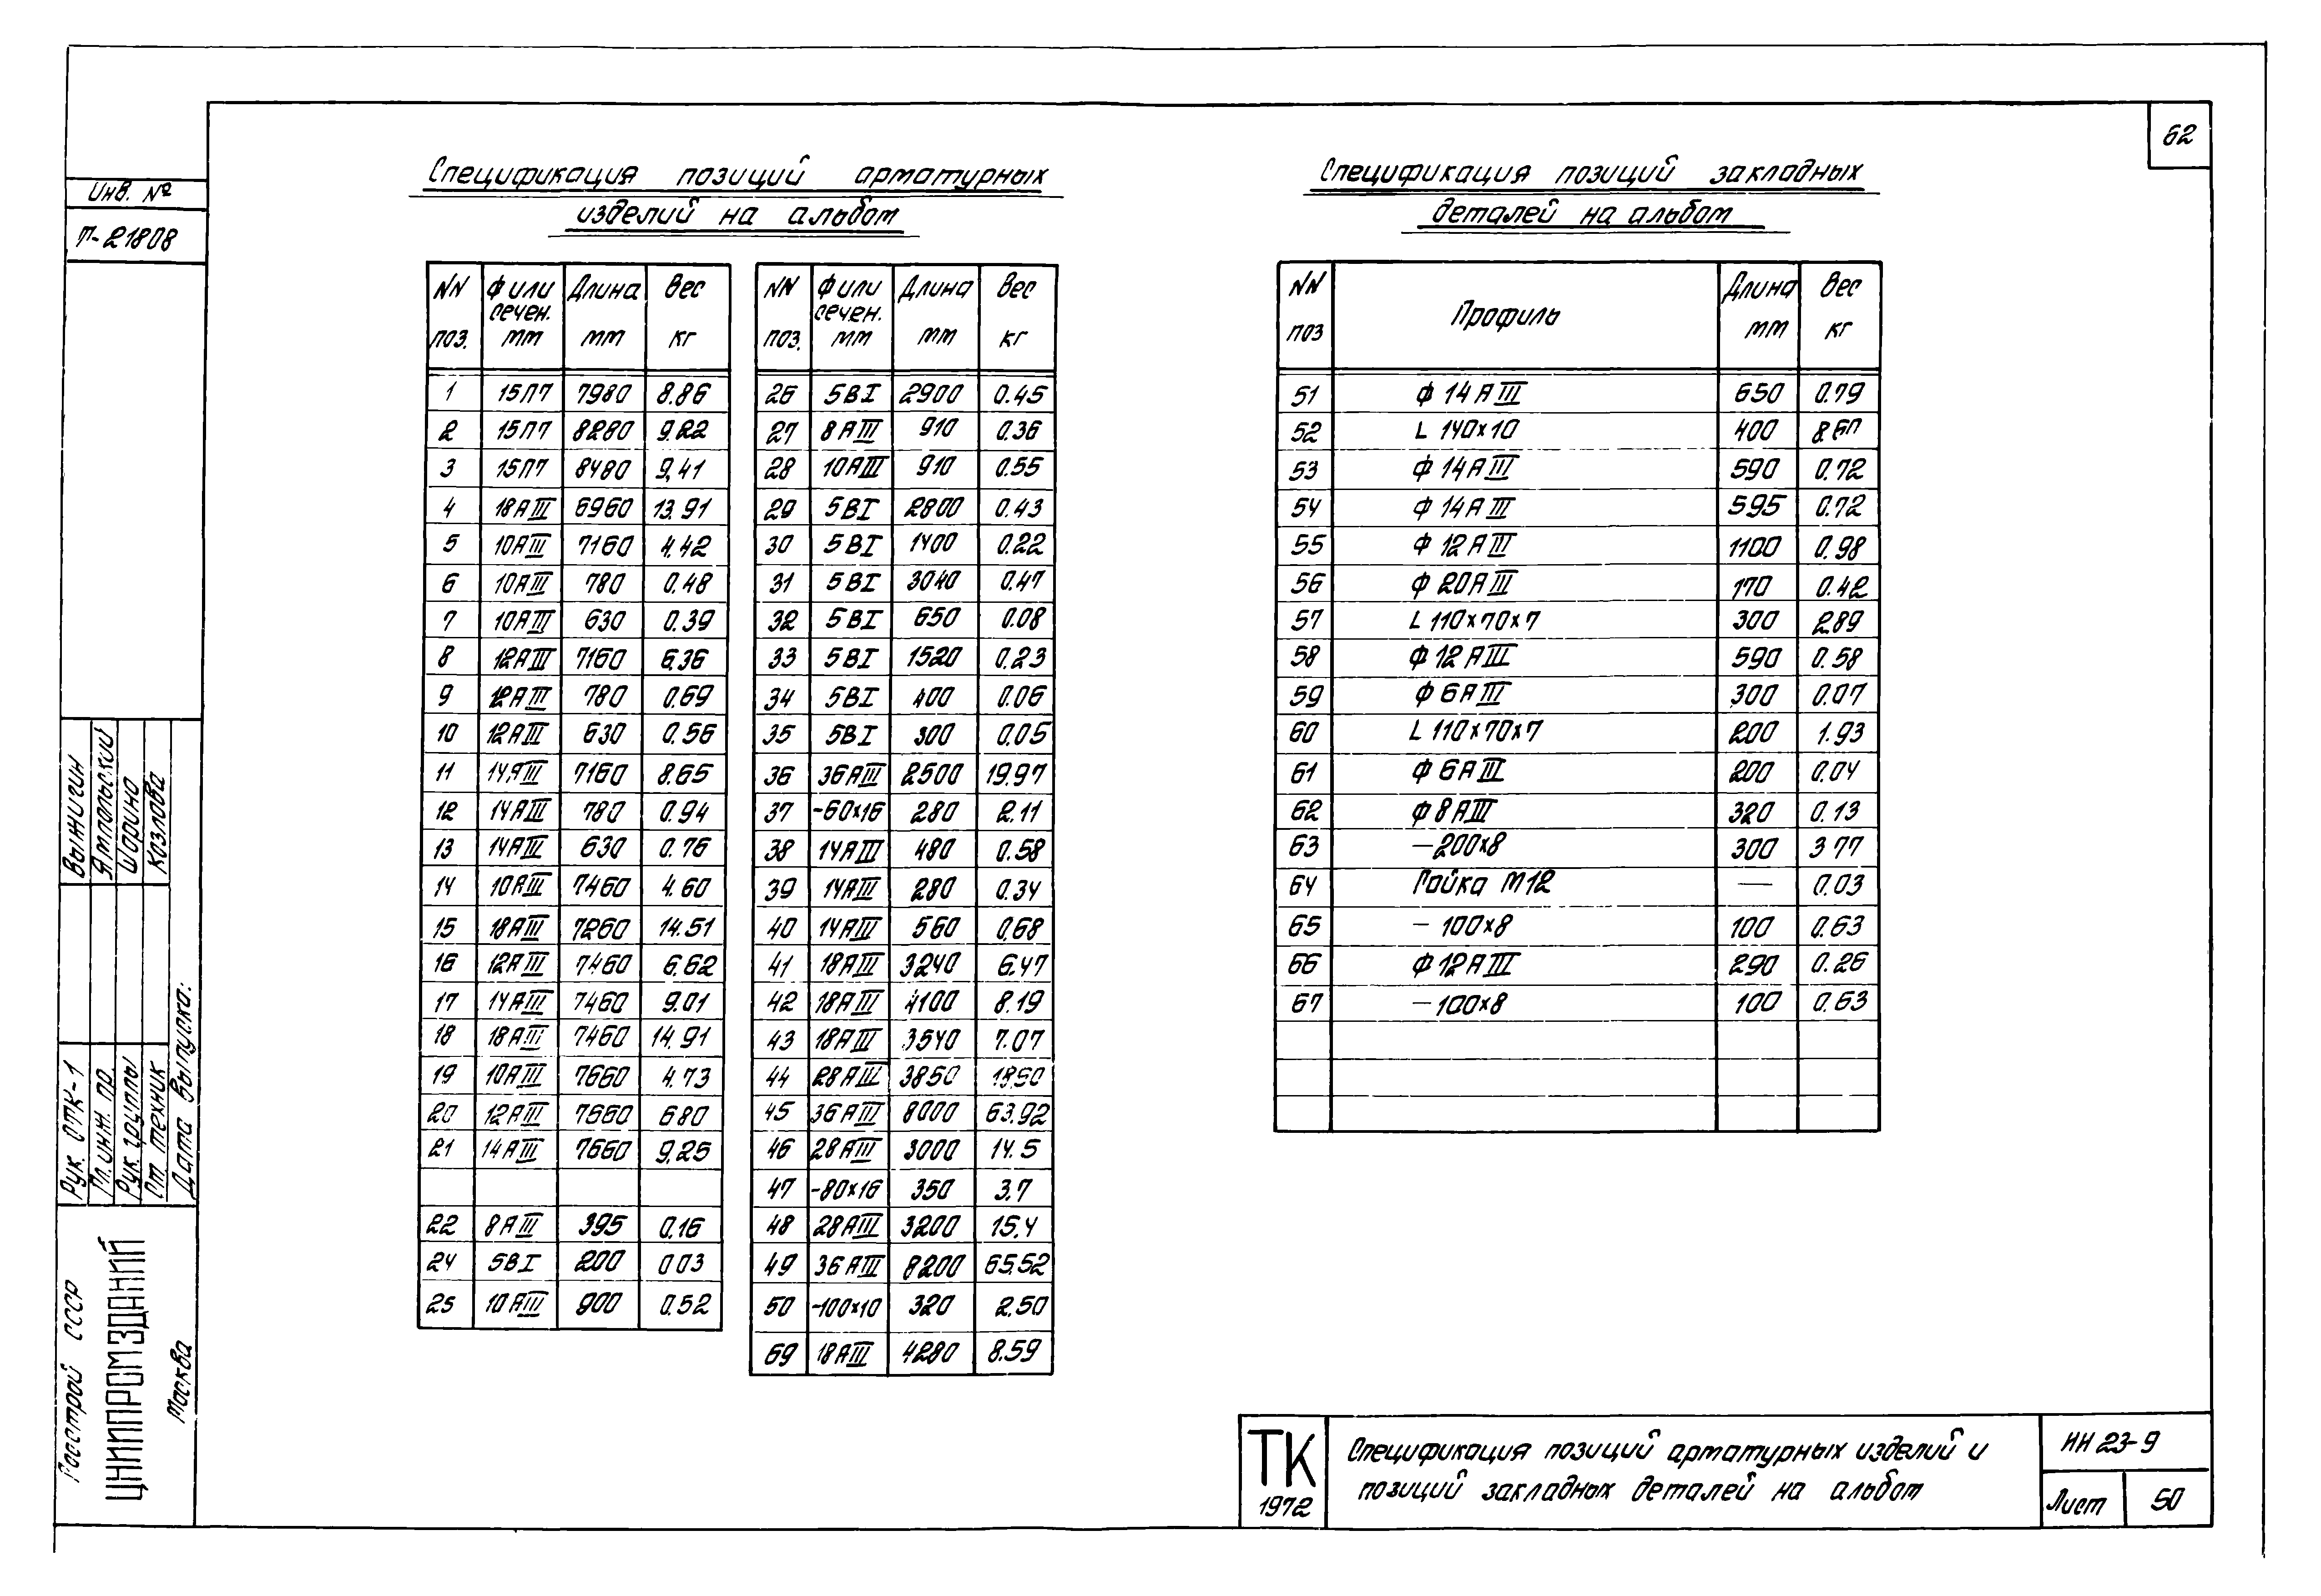 62
Инв. №
Т-21808
Спецификация позиций арматурных
изделий на альбом
NN поз. Ф или сечен. мм Длина мм Вес кг
1 15П7 7980 8.86
2 15П7 8280 9.22
3 15П7 8480 9,41
4 18АIII 6960 13.91
5 10АIII 7160 4.42
6 10АIII 780 0.48
7 10АIII 630 0.39
8 12АIII 7160 6.36
9 12АIII 780 0.69
10 12АIII 630 0.56
11 14АIII 7160 8.65
12 14АIII 780 0.94
13 14АIII 630 0.76
14 10АIII 7460 4.60
15 18АIII 7260 14.51
16 12АIII 7460 6.62
17 14АIII 7460 9.01
18 18АIII 7460 14.91
19 10АIII 7660 4.73
20 12АIII 7660 680
21 14АIII 7660 9.25
22 8АIII 395 0.16
24 5ВI 200 003
25 10АIII 900 0.52
NN поз. Ф или сечен. мм Длина мм Вес кг
26 5ВI 2900 0.45
27 8АIII 910 0.36
28 10АIII 910 0.55
29 5ВI 2800 0.43
30 5ВI 1400 0.22
31 5ВI 3040 0.47
32 5ВI 650 0.08
33 5ВI 1520 0.23
34 5ВI 400 0.06
35 5ВI 300 0.05
36 36АIII 2500 19.97
37 -60×16 280 2.11
38 14АIII 480 0.58
39 14АIII 280 0.34
40 14АIII 560 0,68
41 18АIII 3240 6.47
42 18АIII 4100 8.19
43 18АIII 3540 7.07
44 28АIII 3850 18.50
45 36АIII 8000 63.92
46 28АIII 3000 14.5
47 -80×16 350 3.7
48 28АIII 3200 15.4
49 36АIII 8200 65.52
50 -100×10 320 2.50
69 18АIII 4280 8.59
Спецификация позиций закладных
деталей на альбом
NN поз Профиль Длина мм Вес кг
51 Ф 14АIII 650 0.79
52 L 140×10 400 8 60
53 Ф 14АIII 590 0.72
54 Ф 14АIII 595 0.72
55 Ф 12АIII 1100 0.98
56 Ф 20АIII 170 0.42
57 L 110×70×7 300 2.89
58 Ф 12АIII 590 0.58
59 Ф 6АIII 300 0.07
60 L 110×70×7 200 1.93
61 Ф 6АIII 200 0.04
62 Ф 8АIII 320 0.13
63 —200×8 300 3 77
64 Гайка М12 — 0.03
65 — 100×8 100 0.63
66 Ф 12АIII 290 0.26
67 —100×8 100 0.63
Выжигин
Ямпольский
Шарина
Козлова
Рук. ОТК-1
Гл. инж. пр.
Рук. группы
Ст. техник
Дата выпуска:
Госстрой СССР
ЦНИИПРОМЗДАНИЙ
Москва
ТК
1972
Спецификация позиций арматурных изделий и
позиций закладных деталей на альбом
ИИ 23-9
Лист 50